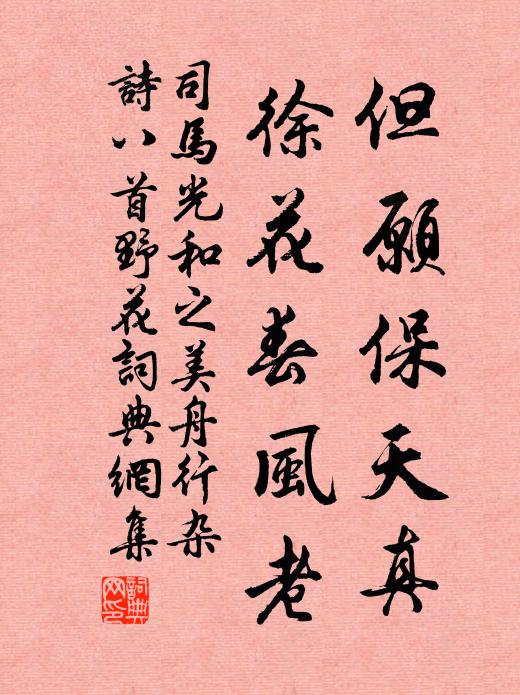 但願保天真
徐花春風老
司馬光和之美舟行杂
詩八首野花詞典網集
詞典網印